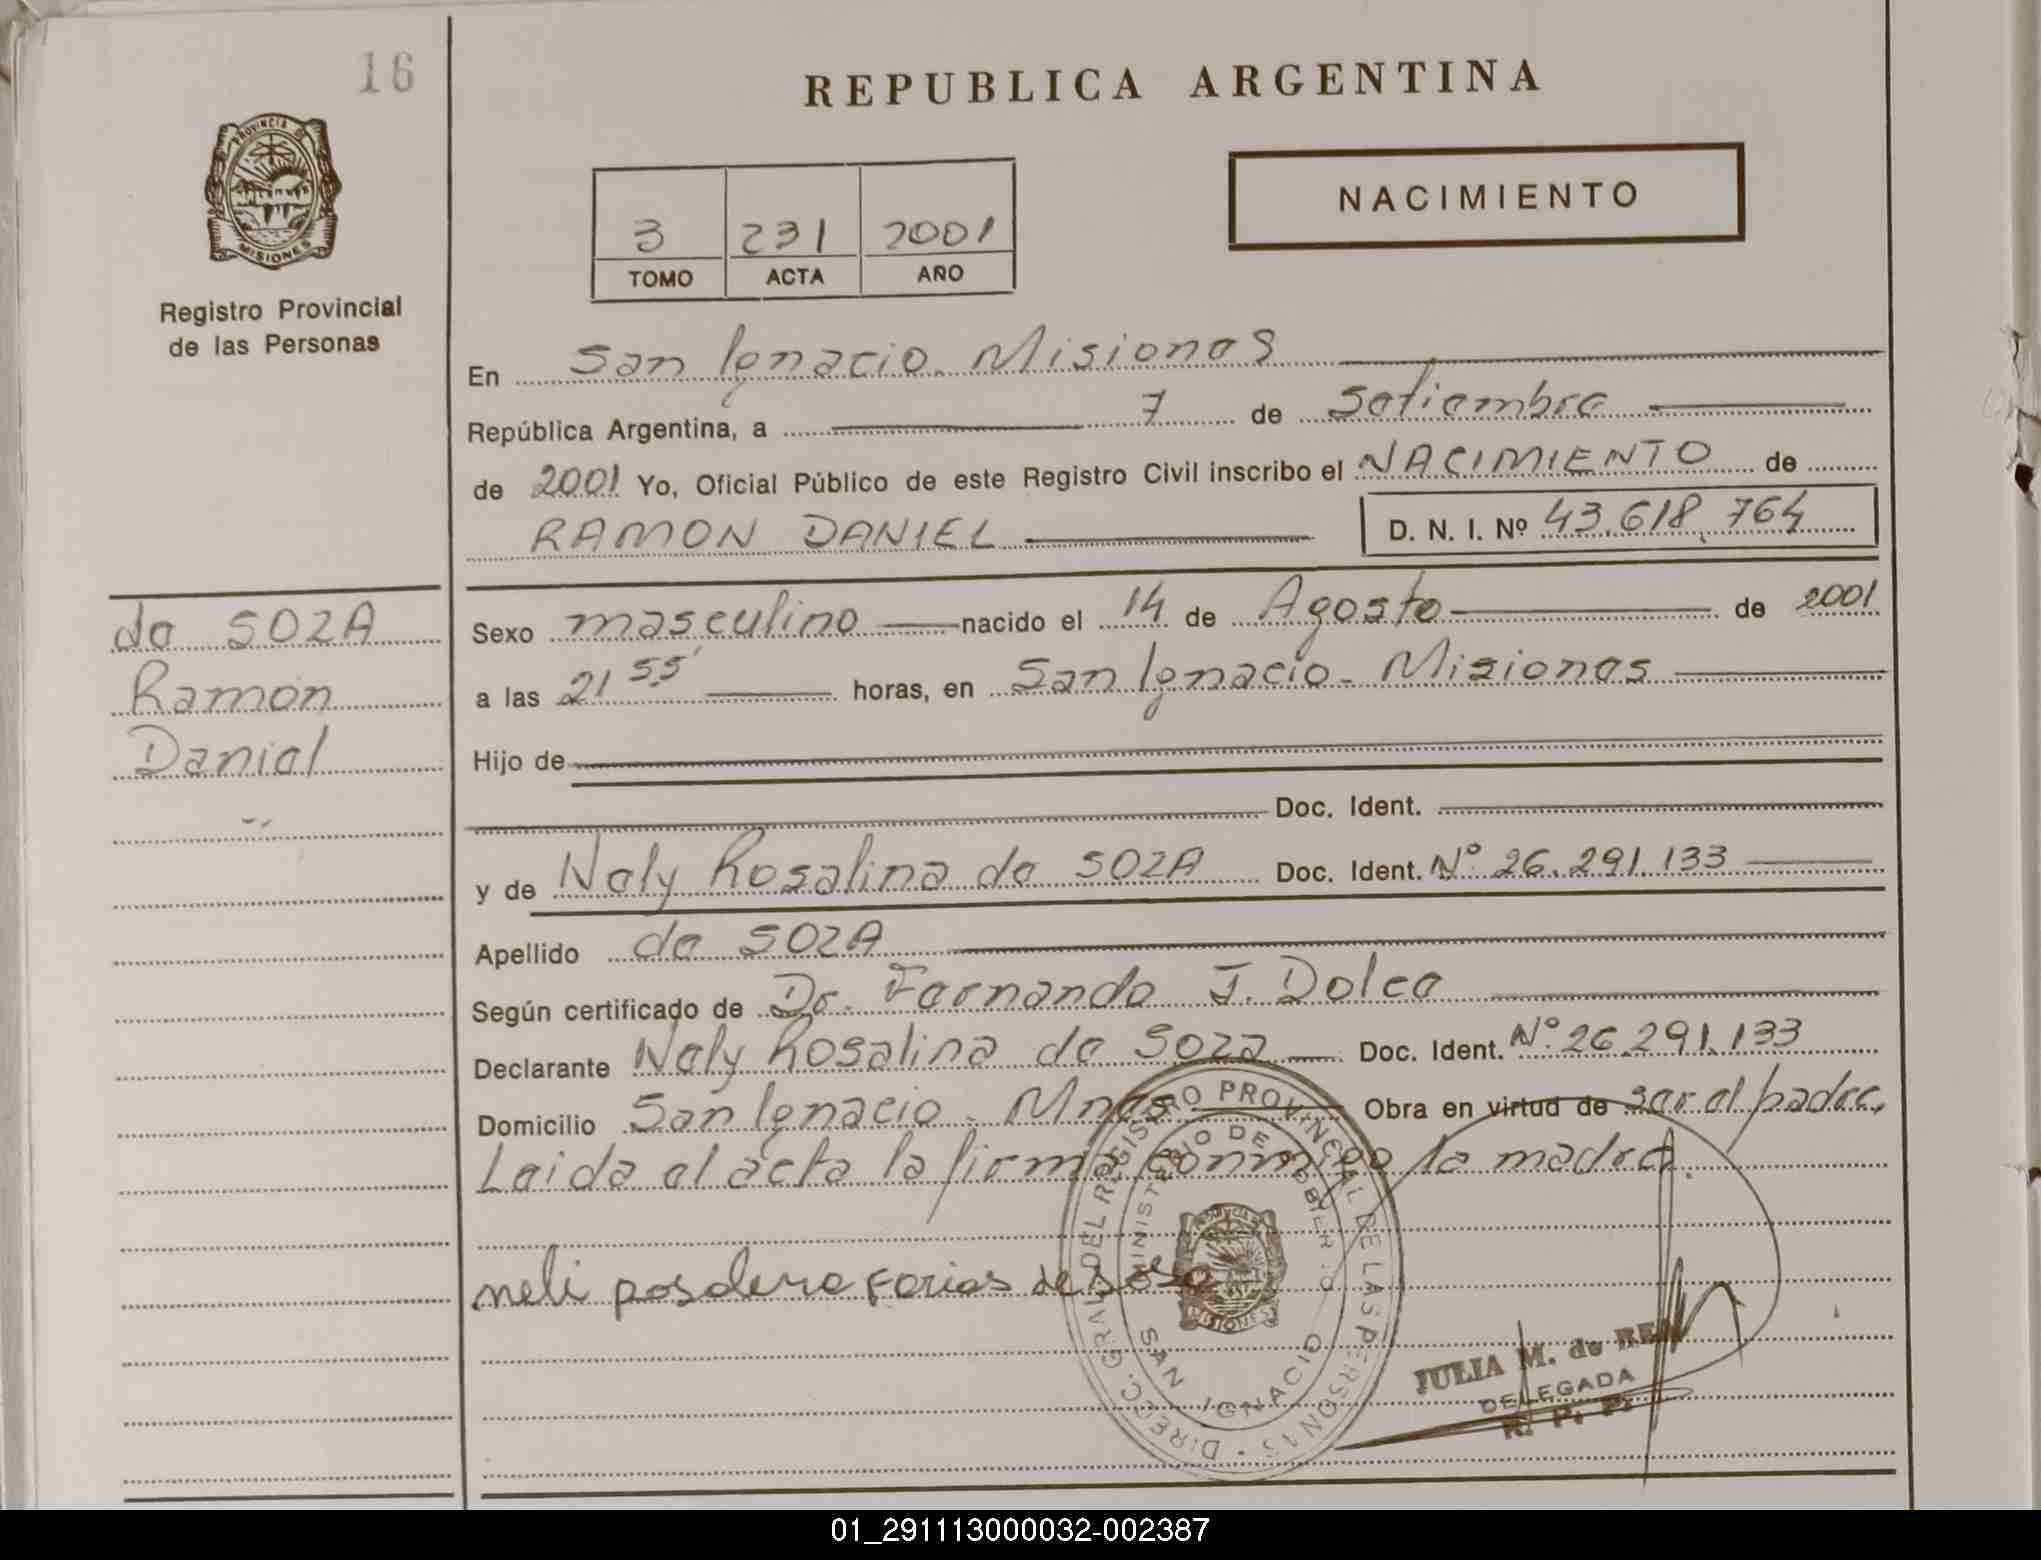 16
REPUBLICA ARGENTINA
PROVINCIA DE
MISIONES
Registro Provincial
de las Personas
3 231 2001
TOMO ACTA AÑO
NACIMIENTO
En San Ignacio. Misiones
República Argentina, a 7 de Setiembre
de 2001 Yo, Oficial Público de este Registro Civil inscribo el NACIMIENTO de
RAMON DANIEL D. N. I. Nº 43.618.764
de SOZA
Ramón
Daniel
Sexo masculino nacido el 14 de Agosto de 2001
a las 21 55' horas, en San Ignacio - Misiones
Hijo de
Doc. Ident.
y de Nely Rosalina de SOZA Doc. Ident. Nº 26.291.133
Apellido de SOZA
Según certificado de Dr. Fernando J. Dolce
Declarante Nely Rosalina de Soza Doc. Ident. Nº 26.291.133
Domicilio San Ignacio - Mnes Obra en virtud de ser el padre.
Leida el acta la firma conmigo la madre.
neli posalena Farias de sosa
DIREC. GRAL. DEL REGISTRO PROVINCIAL DE LAS PERSONAS
MINISTERIO DE GOBIERNO
PROVINCIA DE
MISIONES
SAN IGNACIO
JULIA M. de
DELEGADA
R. P. P.
01_291113000032-002387